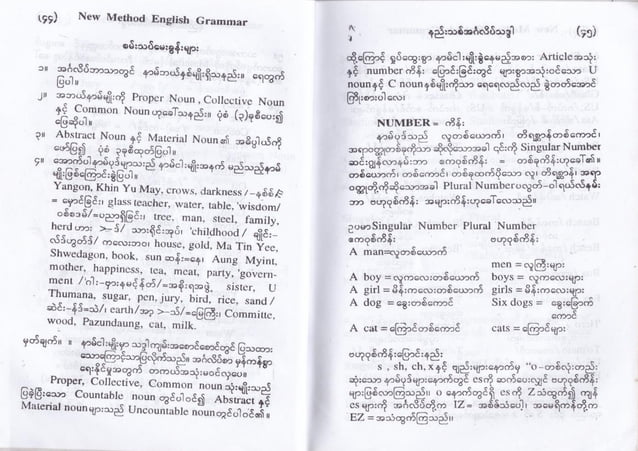 (၄၄) New Method English Grammar
စမ်းသပ်မေးခွန်းများ
၁။ အင်္ဂလိပ်ဘာသာတွင် နာမ်ဘယ်နှစ်မျိုးရှိသနည်း။ ရေတွက်
ပြပါ။
၂။ အဘယ်နာမ်မျိုးကို Proper Noun , Collective Noun
နှင့် Common Noun ဟုခေါ်သနည်း။ ပုံစံ (၃)ခုစီပေး၍
ဖြေဆိုပါ။
၃။ Abstract Noun နှင့် Material Noun ၏ အဓိပ္ပါယ်ကို
ဖော်ပြ၍ ပုံစံ ၃ခုစီထုတ်ပြပါ။
၄။ အောက်ပါနာမ်ပုဒ်များသည် နာမ်ငါးမျိုးအနက် မည်သည့်နာမ်
မျိုးဖြစ်ကြောင်းခွဲပြပါ။
Yangon, Khin Yu May, crows, darkness /-နှစ်စ်/
= မှောင်ခြင်း၊ glass teacher, water, table, 'wisdom/
ဝစ်စဒမ်/=ပညာရှိခြင်း၊ tree, man, steel, family,
herd ဟား သားရိုင်းအုပ်၊ 'childhood / ချိုင်း-
လ်ဒ်ဟွတ်ဒ်/ ကလေးဘဝ၊ house, gold, Ma Tin Yee,
Shwedagon, book, sun ဆန်း=နေ၊ Aung Myint,
mother, happiness, tea, meat, party, 'govern-
ment /'ဂါး-ဗှားနမင့်န်တ်/=အစိုးရအဖွဲ့ sister, U
Thumana, sugar, pen, jury, bird, rice, sand /
ဆဲင်း-န်ဒ်=သဲ/၊ earth/အာ့ =မြေကြီး၊ Committe,
wood, Pazundaung, cat, milk.
မှတ်ချက်။ ။ နာမ်ငါးမျိုးမှာ သဒ္ဒါကျမ်းအစောင်စောင်တွင် ပြသထား
သောကြောင့်သာပြလိုက်သည်။ အင်္ဂလိပ်စာ မှန်ကန်စွာ
ရေးနိုင်မှုအတွက် တကယ်အသုံးမဝင်လှပေ။
Proper, Collective, Common noun သုံးမျိုးသည်
ပြခဲ့ပြီးသော Countable noun တွင်ပါဝင်၍ Abstract နှင့်
Material noun များသည် Uncountable noun တွင်ပါဝင်၏။
နည်းသစ်အင်္ဂလိပ်သဒ္ဒါ (၄၅)
ထို့ကြောင့် ရှုပ်ထွေးစွာ နာမ်ငါးမျိုးခွဲနေမည့်အစား Article အသုံး
နှင့် number ကိန်း ပြောင်းခြင်းတွင် များစွာအသုံးဝင်သော U
noun နှင့် C noun နှစ်မျိုးကိုသာ ရေရေလည်လည် ခွဲတတ်အောင်
ကြိုးစားပါလေ၊
NUMBER = ကိန်း
နာမ်ပုဒ်သည် လူတစ်ယောက်၊ တိရစ္ဆာန်တစ်ကောင်၊
အရာဝတ္ထုတစ်ခုကိုသာ ဆိုလိုသောအခါ ၎င်းကို Singular Number
ဆင်းဂျွန်လာနမ်းဘာ ဧကဝုစ်ကိန်း = တစ်ခုကိန်းဟုခေါ်၏။
တစ်ယောက်၊ တစ်ကောင်၊ တစ်ခုထက်ပိုသော လူ၊ တိရစ္ဆာန်၊ အရာ
ဝတ္ထုတို့ကိုဆိုသောအခါ Plural Number ပလွတ်-ဝါရယ်လ်နမ်း
ဘာ ဗဟုဝုစ်ကိန်း အများကိန်းဟုခေါ်သောသည်။
ဥပမာ Singular Number Plural Number
ဧကဝုစ်ကိန်း ဗဟုဝုစ်ကိန်း
A man=လူတစ်ယောက်
men = လူကြီးများ
A boy =လူကလေးတစ်ယောက် boys = လူကလေးများ
A girl = မိန်းကလေးတစ်ယောက် girls = မိန်းကလေးများ
A dog = ခွေးတစ်ကောင် Six dogs = ခွေးခြောက်
ကောင်
A cat =ကြောင်တစ်ကောင် cats = ကြောင်များ
ဗဟုဝုစ်ကိန်းပြောင်းနည်း
s , sh, ch, x နှင့် ဗျည်းများနောက်မှ "o-တစ်လုံးတည်း
ဆုံးသော နာမ်ပုဒ်များနောက်တွင် es ကို ဆက်ပေးလျှင် ဗဟုဝုစ်ကိန်း
များဖြစ်လာကြသည်။ o နောက်တွင်ရှိ es ကို Z သံထွက်၍ ကျန်
es များကို အင်္ဂလိပ်တို့က IZ= အစ်ဇ်သံပေါ့၊ အမေရိကန်တို့က
EZ = အသံထွက်ကြသည်။